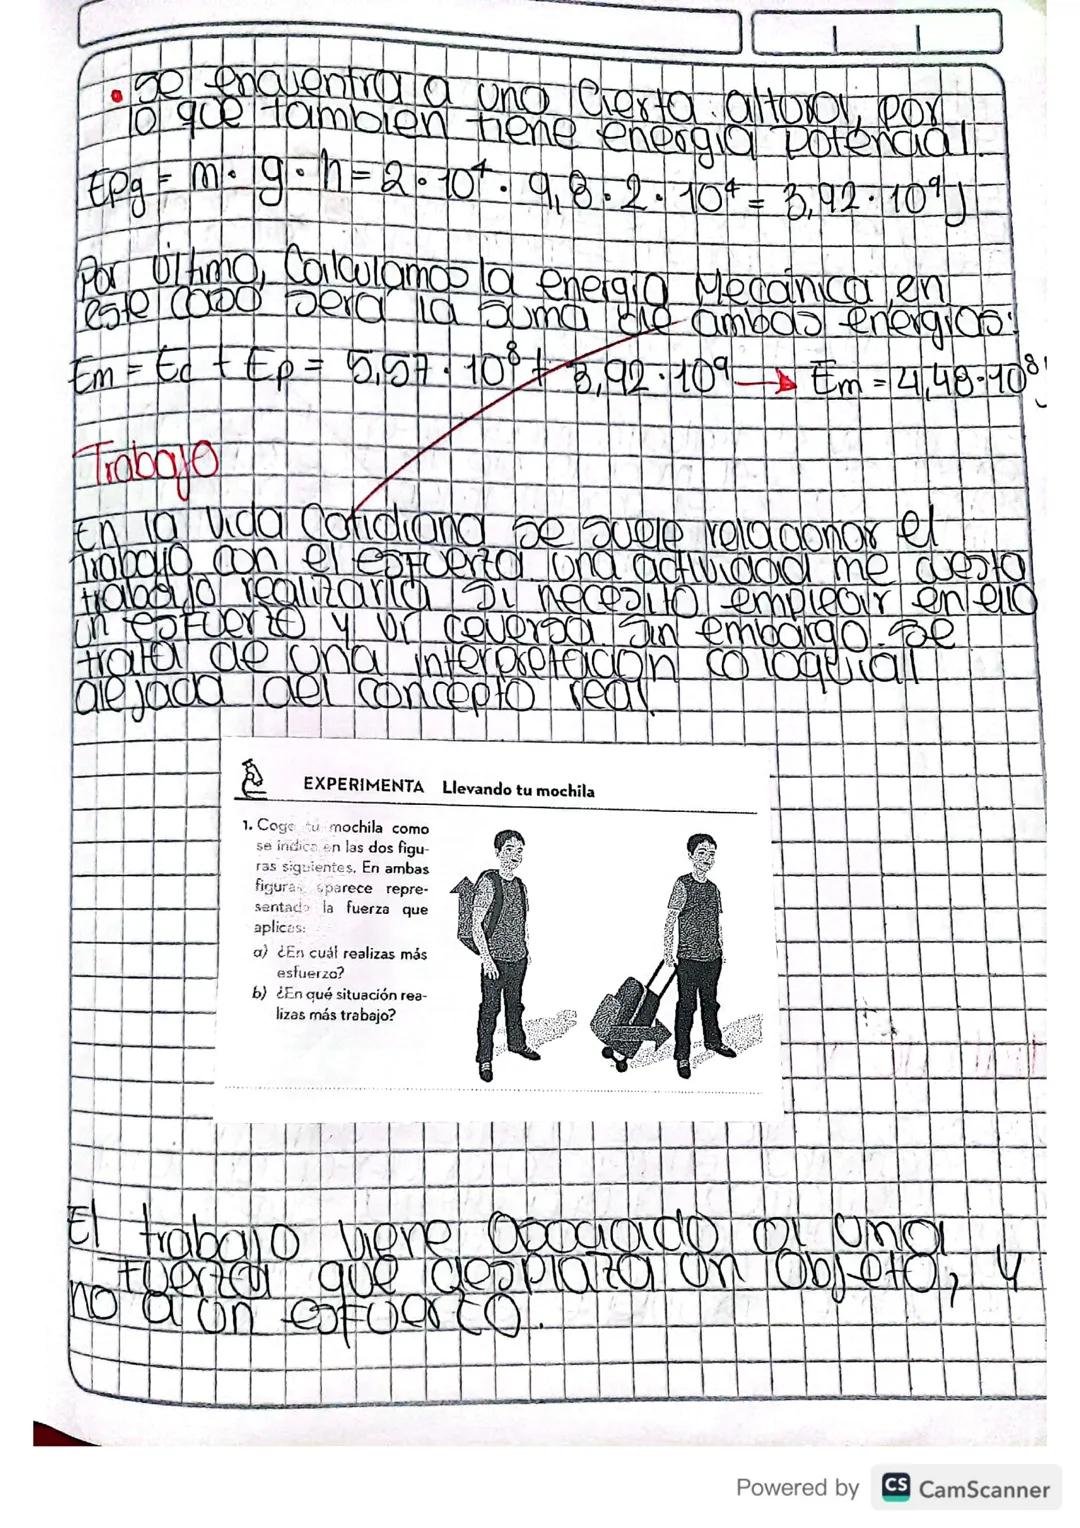 • Se encuentra a una Cierta altura, por
lo que tambien tiene energia potencial.
Epg = m · g · h = 2 · 10⁴ · 9,8 · 2 · 10⁴ = 3,92 · 10⁹ J
Por último, Calculamos la energia Mecánica, en
este caso será la suma de ambas energias:
Em = Ec + Ep = 5,57 · 10⁸ + 3,92 · 10⁹ → Em = 4,48 · 10⁸ J
Trabajo
En la vida Cotidiana se suele relacionar el
trabajo con el esfuerzo una actividad me cuesta
trabajo realizarla si necesito emplear en ello
un esfuerzo y vi ceversa sin embargo se
trata de una interpretacion coloquial
alejada del concepto real.
EXPERIMENTA Llevando tu mochila
1. Coge tu mochila como
se indica en las dos figu-
ras siguientes. En ambas
figuras aparece repre-
sentado la fuerza que
aplicas:
a) ¿En cuál realizas más
esfuerzo?
b) ¿En qué situación rea-
lizas más trabajo?
El trabajo viene asociado a una
fuerza que desplaza un objeto, y
no a un esfuerzo.
Powered by CS CamScanner